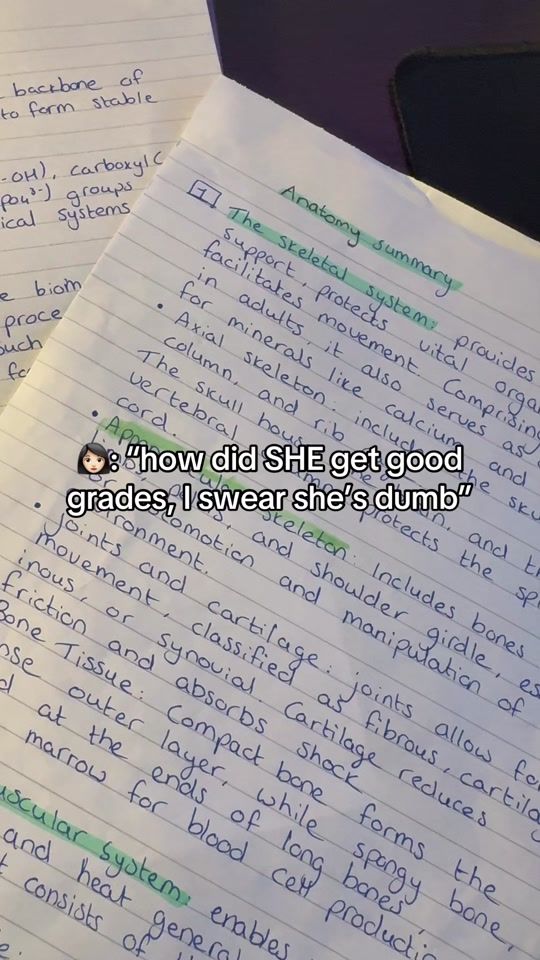 backbone of
to form stable
-OH), carboxyl C
PO4³-) groups
ical systems
e biom
proce
such
fo
1 Anatomy summary
The skeletal system: provides
support, protects vital orga
facilitates movement. Comprising
in adults, it also serves as
for minerals like calcium and
• Axial skeleton: includes the sku
column, and rib
The skull hous and th
vertebral protects the spi
cord.
👩🏻: “how did SHE get good
grades, I swear she’s dumb”
• skeleton: includes bones
and shoulder girdle, es
locomotion and manipulation of
ironment.
• Joints and cartilage: joints allow fo
movement, classified as fibrous, cartila
inous, or synovial. Cartilage reduces
friction and absorbs shock
Bone Tissue: Compact bone forms the
nse outer layer, while spongy bone,
d at the ends of long bones,
marrow for blood cell productio
uscular system: enables
and heat genera
t consists of